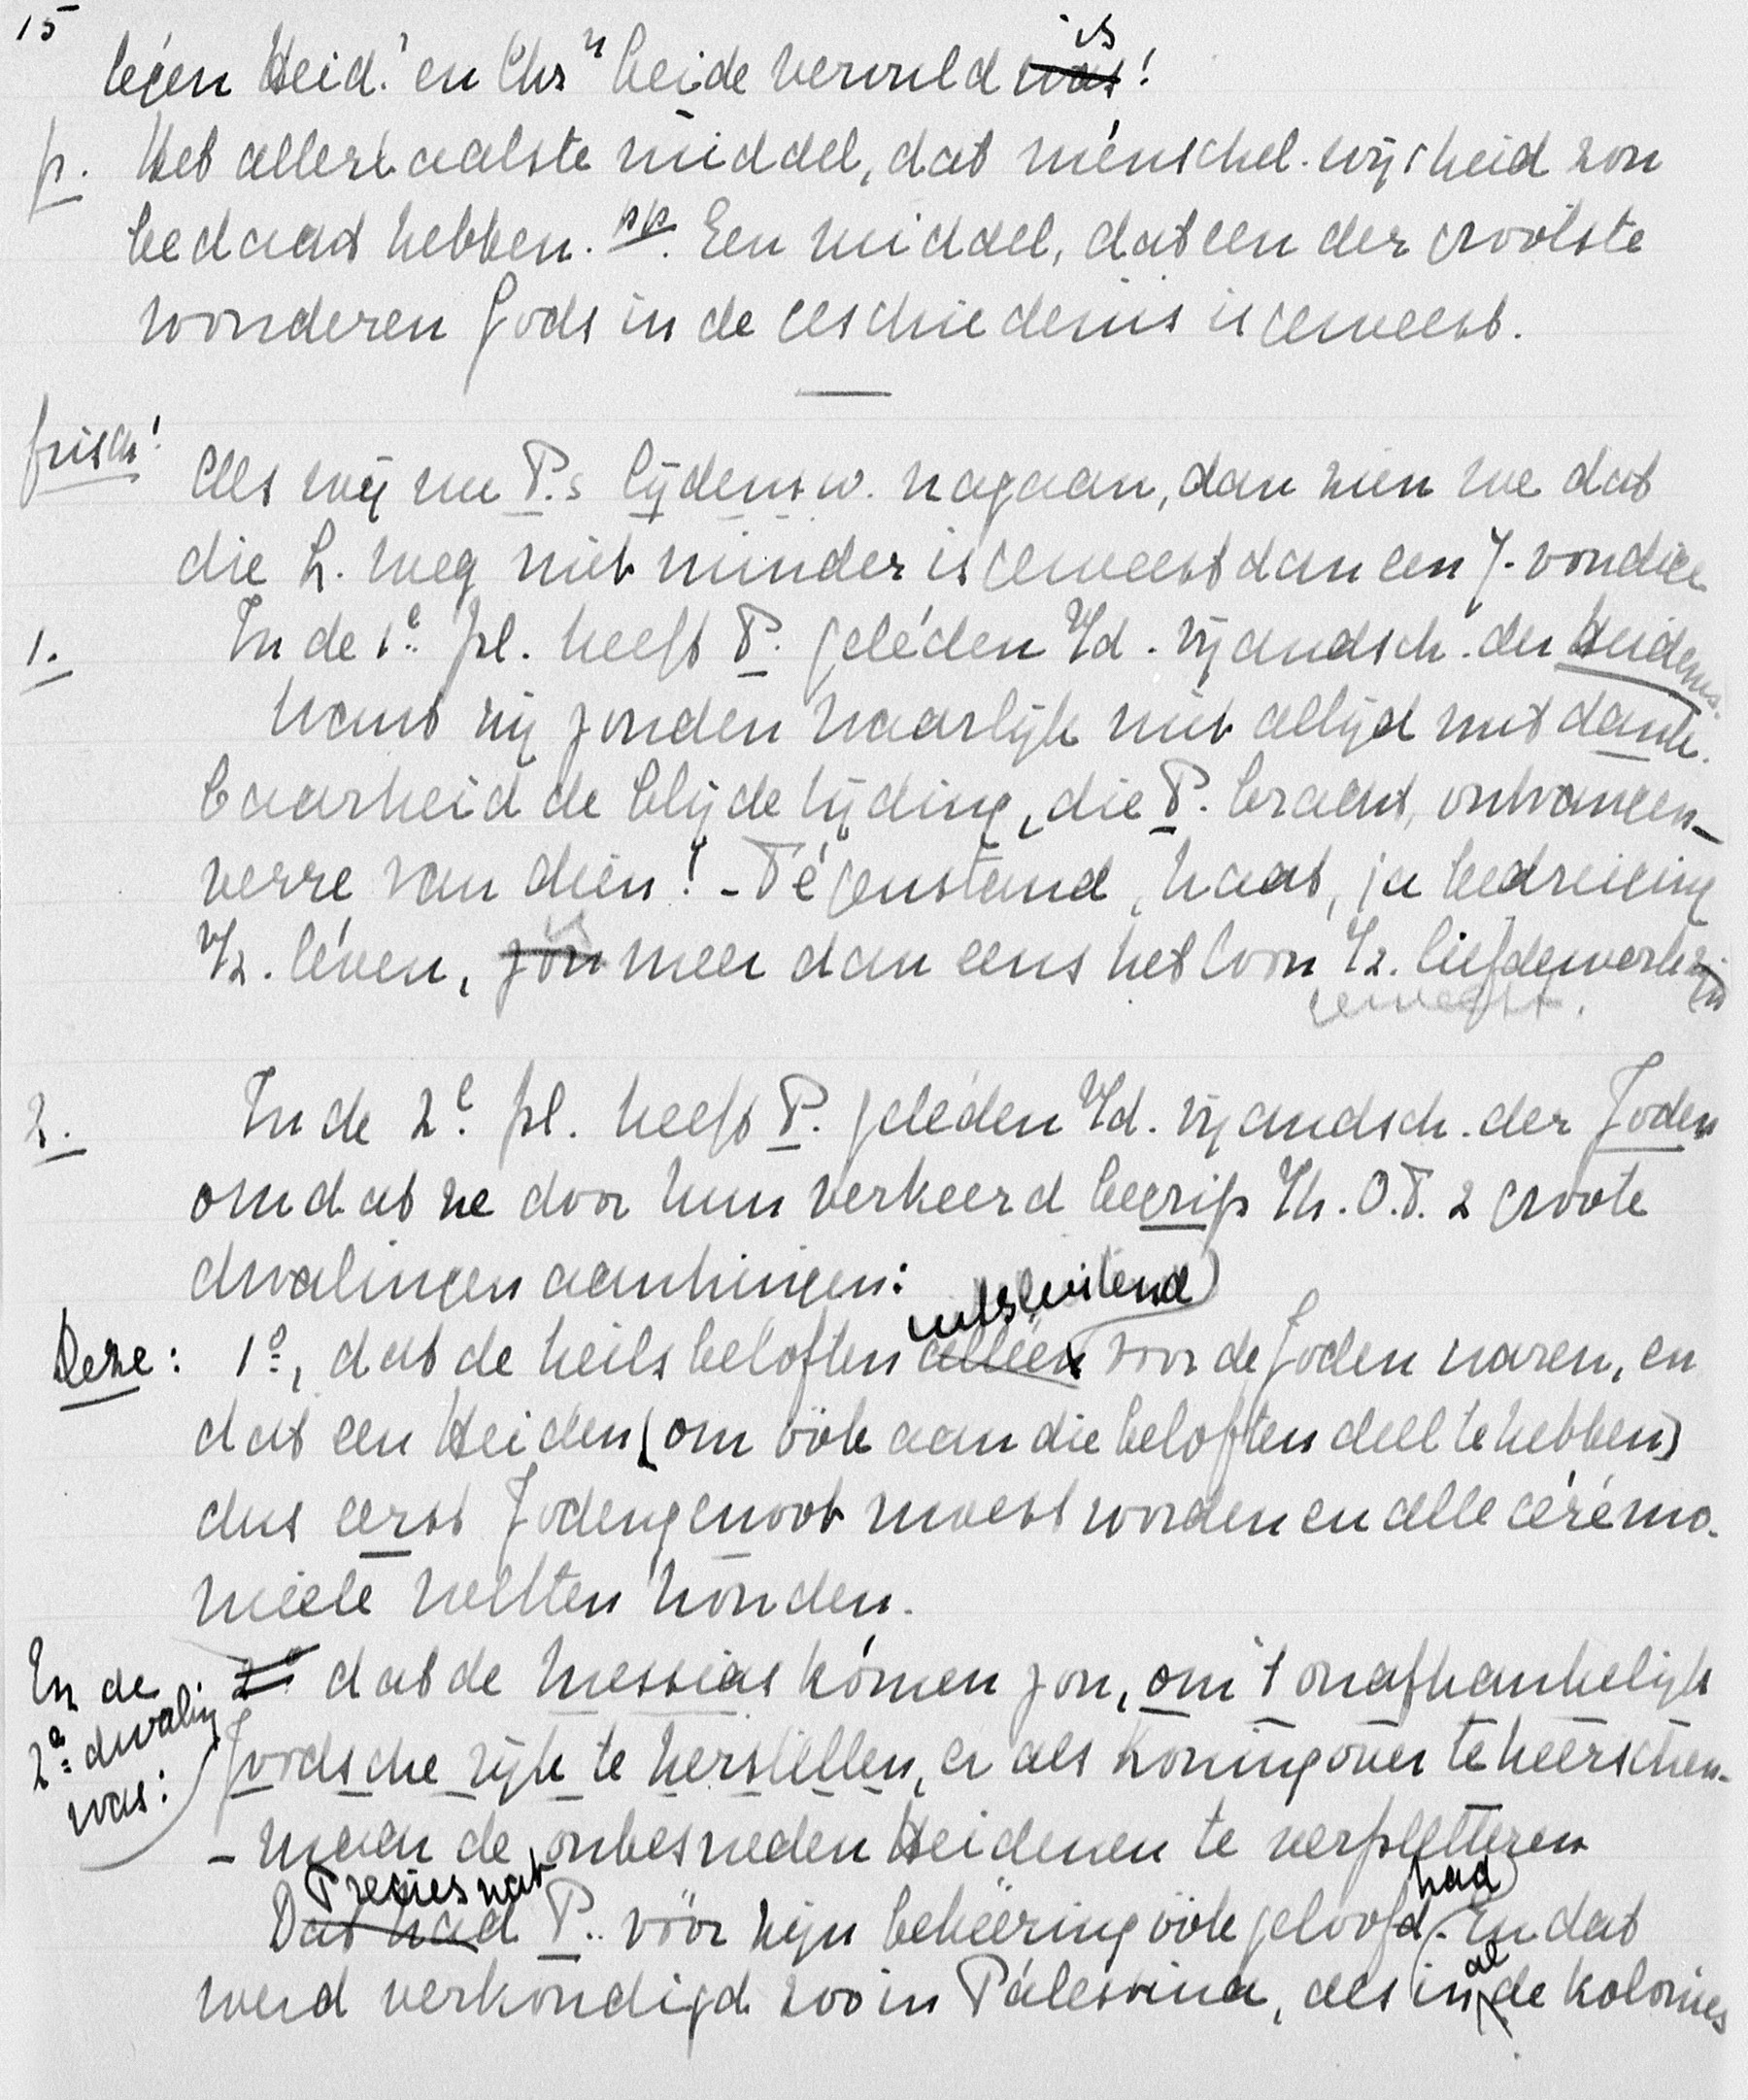 15
tegen Heid.' en Chrⁿ beide vervuld was is!
p. Het allerlaatste middel, dat menschel. wijsheid zou
bedacht hebben. pp. Een middel, dat een der grootste
wonderen Gods in de geschiedenis is geweest.
frisch! Als wij nu P.s lijdensw. nagaan, dan zien we dat
die L. weg niet minder is geweest dan een
1. In de 1e pl. heeft P. geléden v/d. vijandsch. der Heidens.
want zij zouden waarlijk niet altijd met dank-
baarheid de blijde tijding, die P. bracht, ontvangen -
verre van dien! - Tégenstand, haat, ja bedreiging
v/z. léven, zou is meer dan eens het loon v/z. liefdewerk zijn
geweest.
2. In de 2e pl. heeft P. geléden v/d. vijandsch. der Joden
omdat ze door hun verkeerd begrip v/h. O.T. 2 groote
dwalingen aanhingen:
uitsluitend
Deze: 1o, dat de heilsbeloften alléén voor de Joden waren, en
dat een Heiden (om óók aan die beloften deel te hebben)
dus eerst Jodengenoot moest worden en alle cérémo-
niëele wetten houden.
En de 2e dwaling was: 2o dat de Messias kómen zou, om 't onafhankelijk
Joodsche rijk te herstellen, er als Koning over te heerschen -
- en de onbesneden Heidenen te verpletteren
Precies wat had
Dat had P. vóór zijn bekéering óók geloofd. En dat
werd verkondigd zoo in Pálestina, als in al de kolonies